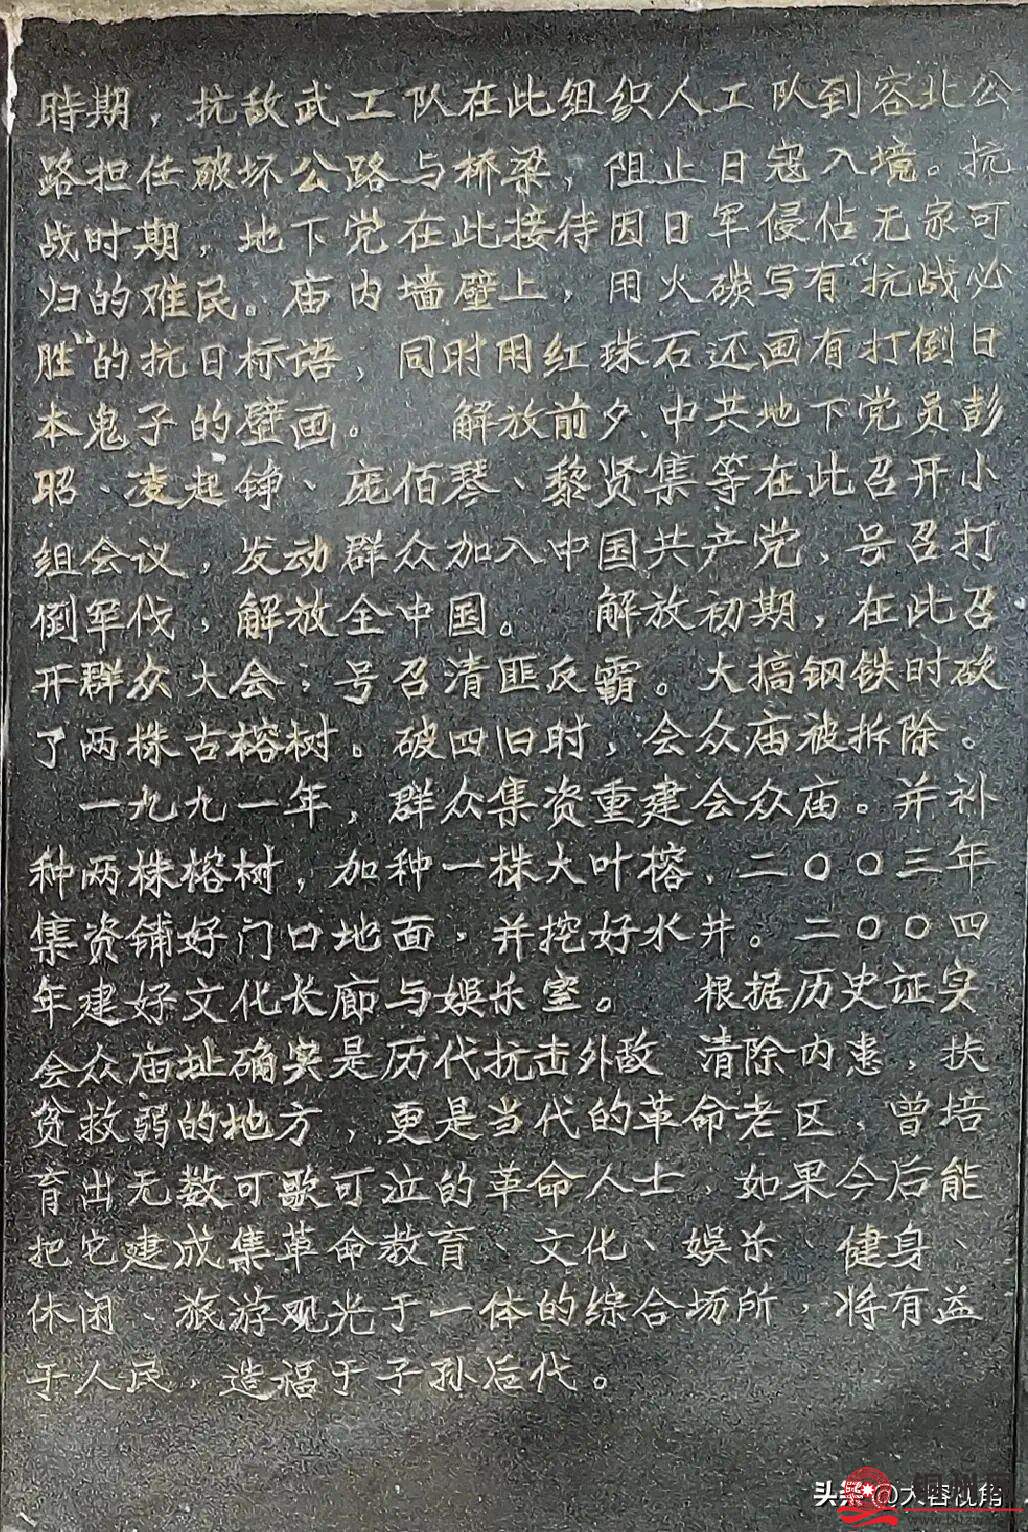 時期，抗敌武工队在此组织人工队到容北公
路担任破坏公路与桥梁，阻止日寇入境。抗
战时期，地下党在此接待因日军侵佔无家可
归的难民。庙内墙壁上，用火碳写有“抗战必
胜”的抗日标语，同时用红珠石还画有打倒日
本鬼子的壁画。 解放前夕、中共地下党员彭
昭、凌起铮、庞佰琴、黎贤集等在此召开小
组会议，发动群众加入中国共产党，号召打
倒军伐，解放全中国。 解放初期，在此召
开群众大会；号召清匪反霸。大搞钢铁时砍
了两株古榕树。破四旧时，会众庙被拆除。
一九九一年，群众集资重建会众庙。并补
种两株榕树，加种一株大叶榕，二〇〇三年
集资铺好门口地面，并挖好水井。二〇〇四
年建好文化长廊与娱乐室。 根据历史证实
会众庙址确实是历代抗击外敌 清除内患，扶
贫救弱的地方，更是当代的革命老区，曾培
育出无数可歌可泣的革命人士，如果今后能
把它建成集革命教育、文化、娱乐、健身、
休闲、旅游观光于一体的综合场所，将有益
于人民，造福于子孙后代。
头条@大容视角